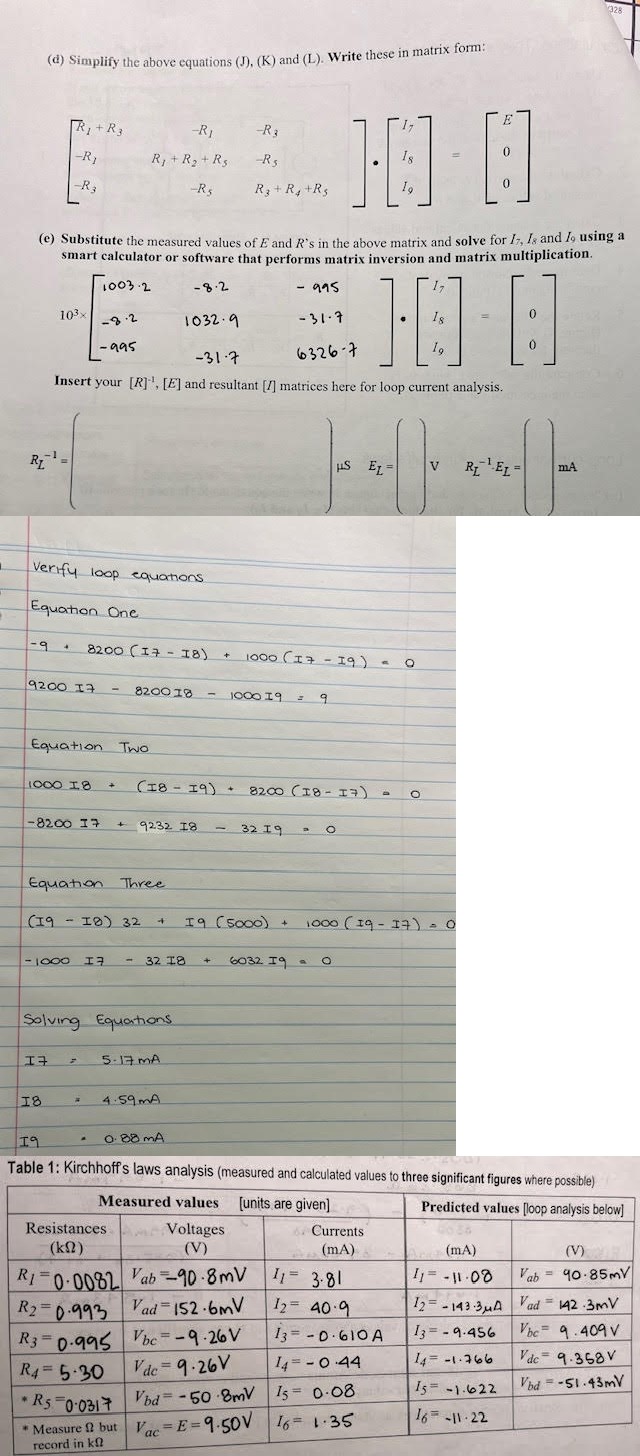 328
(d) Simplify the above equations (J), (K) and (L). Write these in matrix form:
R1 + R3 -R1 -R3 I7 E
-R1 R1 + R2 + R5 -R5 • I8 = 0
-R3 -R5 R3 + R4 +R5 I9 0
(e) Substitute the measured values of E and R's in the above matrix and solve for I7, I8 and I9 using a
smart calculator or software that performs matrix inversion and matrix multiplication.
1003.2 -8.2 - 995 I7
10³× -8.2 1032.9 -31.7 • I8 = 0
-995 -31.7 6326.7 I9 0
Insert your [R]⁻¹, [E] and resultant [I] matrices here for loop current analysis.
RL⁻¹ = µS EL = V RL⁻¹.EL = mA
Verify loop equations
Equation One
-9 + 8200 (I7 - I8) + 1000 (I7 - I9) = 0
9200 I7 - 8200 I8 - 1000 I9 = 9
Equation Two
1000 I8 + (I8 - I9) + 8200 (I8 - I7) = 0
-8200 I7 + 9232 I8 - 32 I9 = 0
Equation Three
(I9 - I8) 32 + I9 (5000) + 1000 (I9 - I7) = 0
-1000 I7 - 32 I8 + 6032 I9 = 0
Solving Equations
I7 = 5.17 mA
I8 = 4.59 mA
I9 = 0.88 mA
Table 1: Kirchhoff's laws analysis (measured and calculated values to three significant figures where possible)
Measured values [units are given] Predicted values [loop analysis below]
Resistances Voltages Currents
(kΩ) (V) (mA) (mA) (V)
R1 = 0.0082 Vab = -90.8mV I1 = 3.81 I1 = -11.08 Vab = 90.85mV
R2 = 0.993 Vad = 152.6mV I2 = 40.9 I2 = -143.3µA Vad = 142.3mV
R3 = 0.995 Vbc = -9.26V I3 = -0.610A I3 = -9.456 Vbc = 9.409V
R4 = 5.30 Vdc = 9.26V I4 = -0.44 I4 = -1.766 Vdc = 9.358V
* R5 = 0.0317 Vbd = -50.8mV I5 = 0.08 I5 = -1.622 Vbd = -51.43mV
* Measure Ω but Vac = E = 9.50V I6 = 1.35 I6 = -11.22
record in kΩ